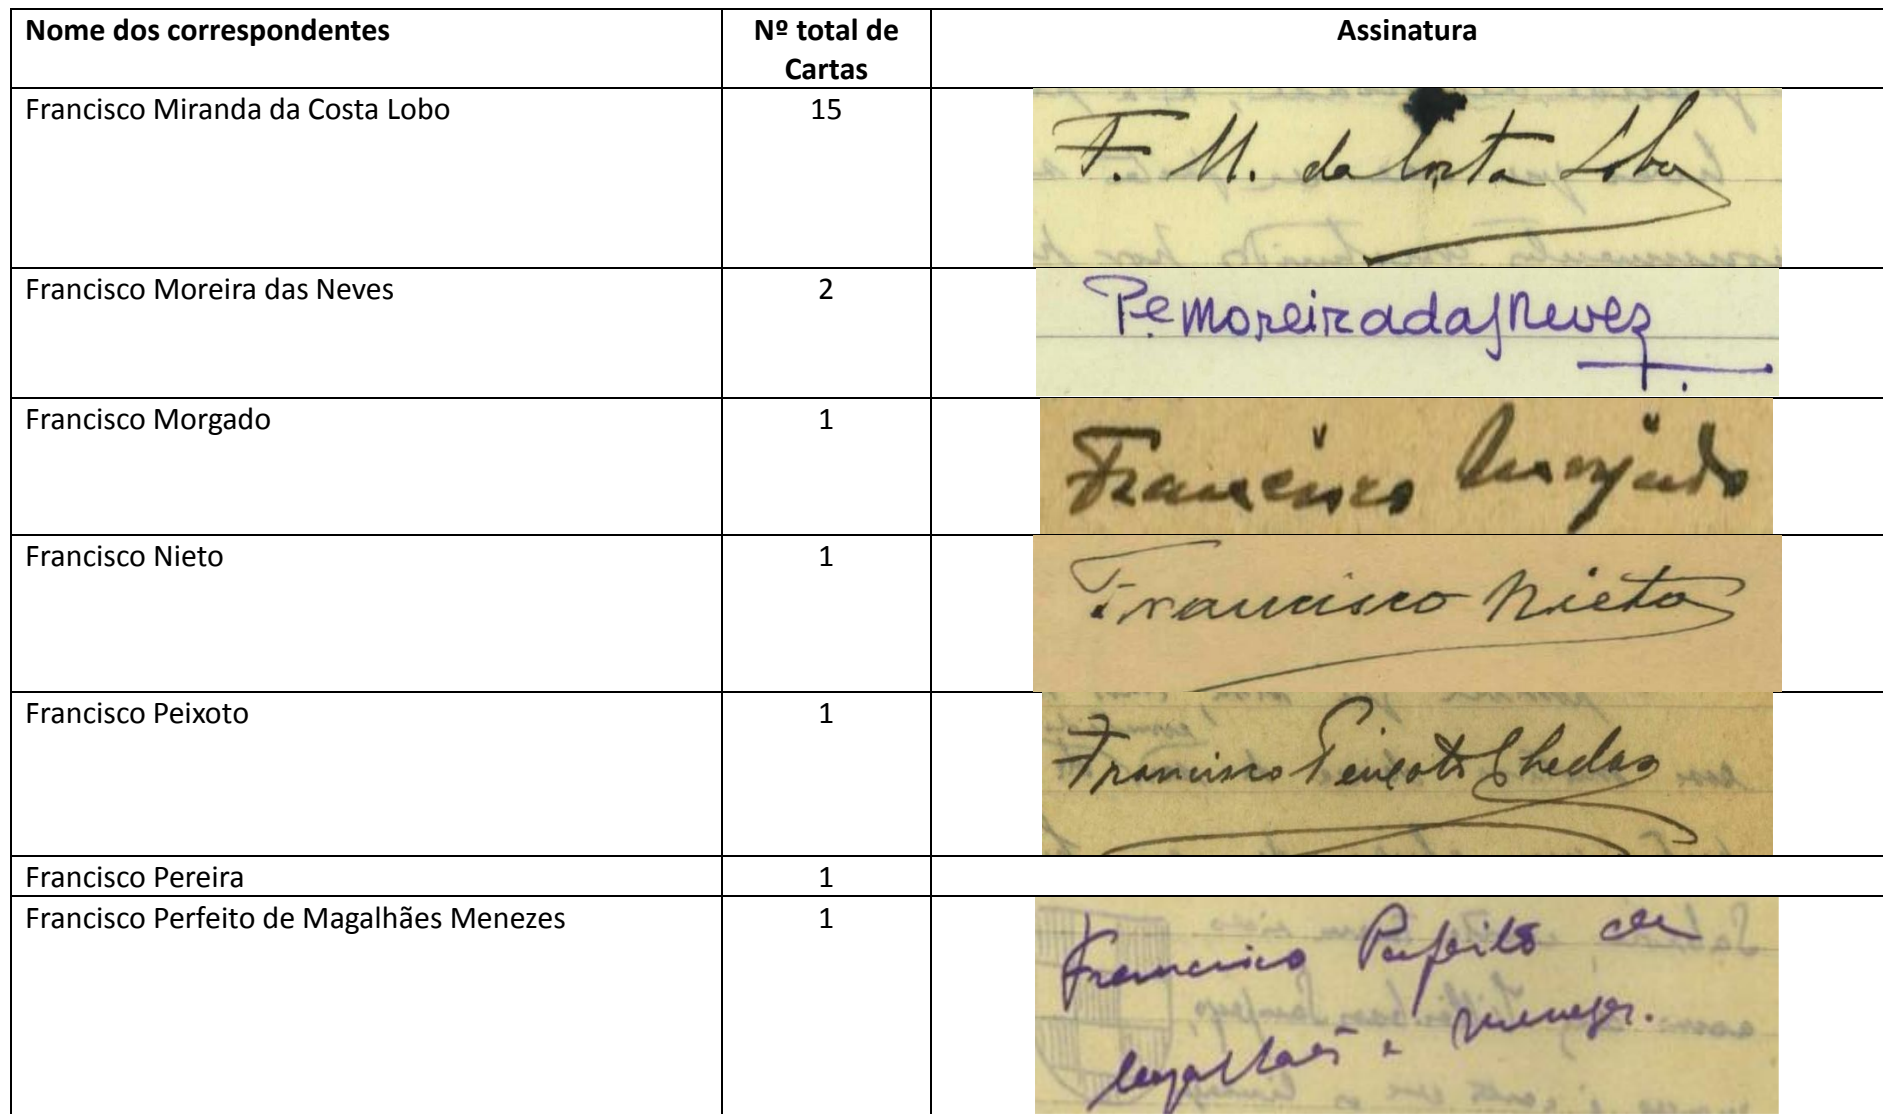 Nome dos correspondentes
Nº total de
Cartas
Assinatura
Francisco Miranda da Costa Lobo
15
F. M. da Costa Lobo
Francisco Moreira das Neves
2
Pe Moreira das Neves
Francisco Morgado
1
Francisco Morgado
Francisco Nieto
1
Francisco Nieto
Francisco Peixoto
1
Francisco Peixoto
Francisco Pereira
1
Francisco Perfeito de Magalhães Menezes
1
Francisco Perfeito de
Magalhães e Menezes.